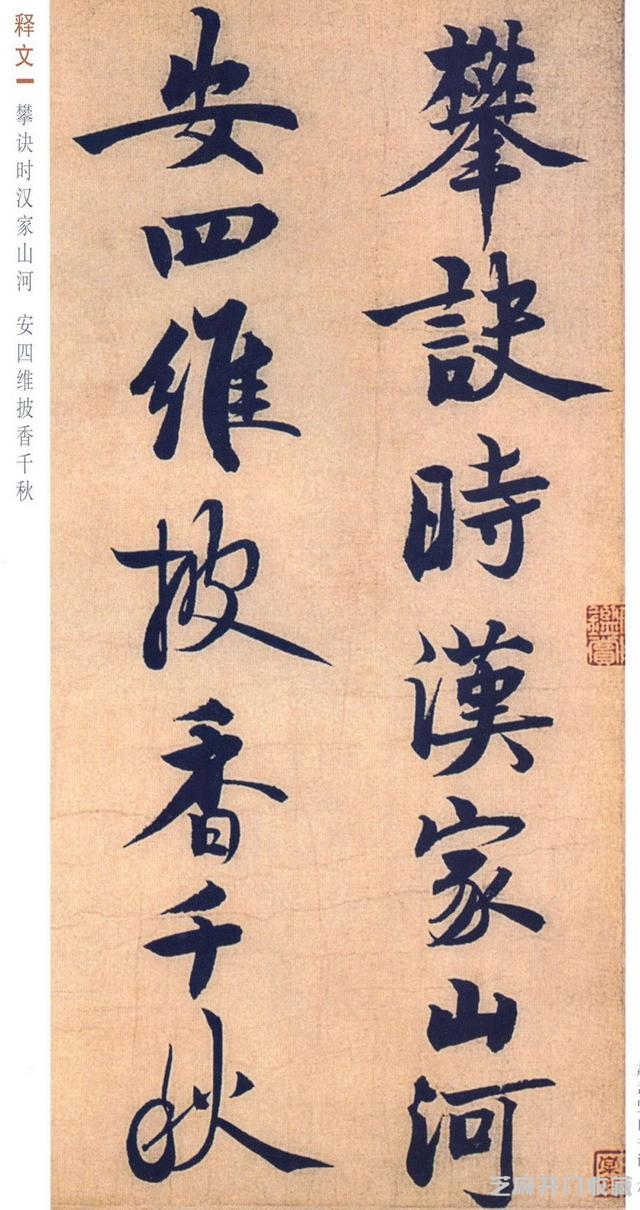 释文一 攀诀时汉家山河 安四维披香千秋
攀訣時漢家山河
安四維披香千秋
芝麻开门收藏